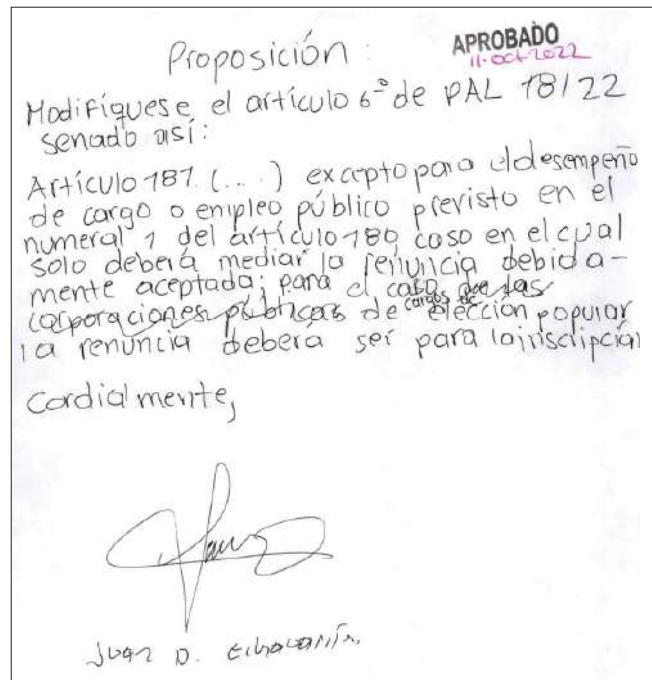 Proposición:
APROBADO
11-oct-2022
Modifíquese el artículo 6º de PAL 18/22
senado así:
Artículo 181. (....) excepto para el desempeño
de cargo o empleo público previsto en el
numeral 1 del artículo 180, caso en el cual
solo deberá mediar la renuncia debida-
mente aceptada; para el caso de las
cargos de
corporaciones públicas de elección popular
la renuncia deberá ser para la inscripción
Cordialmente,
Juan D. Echavarría